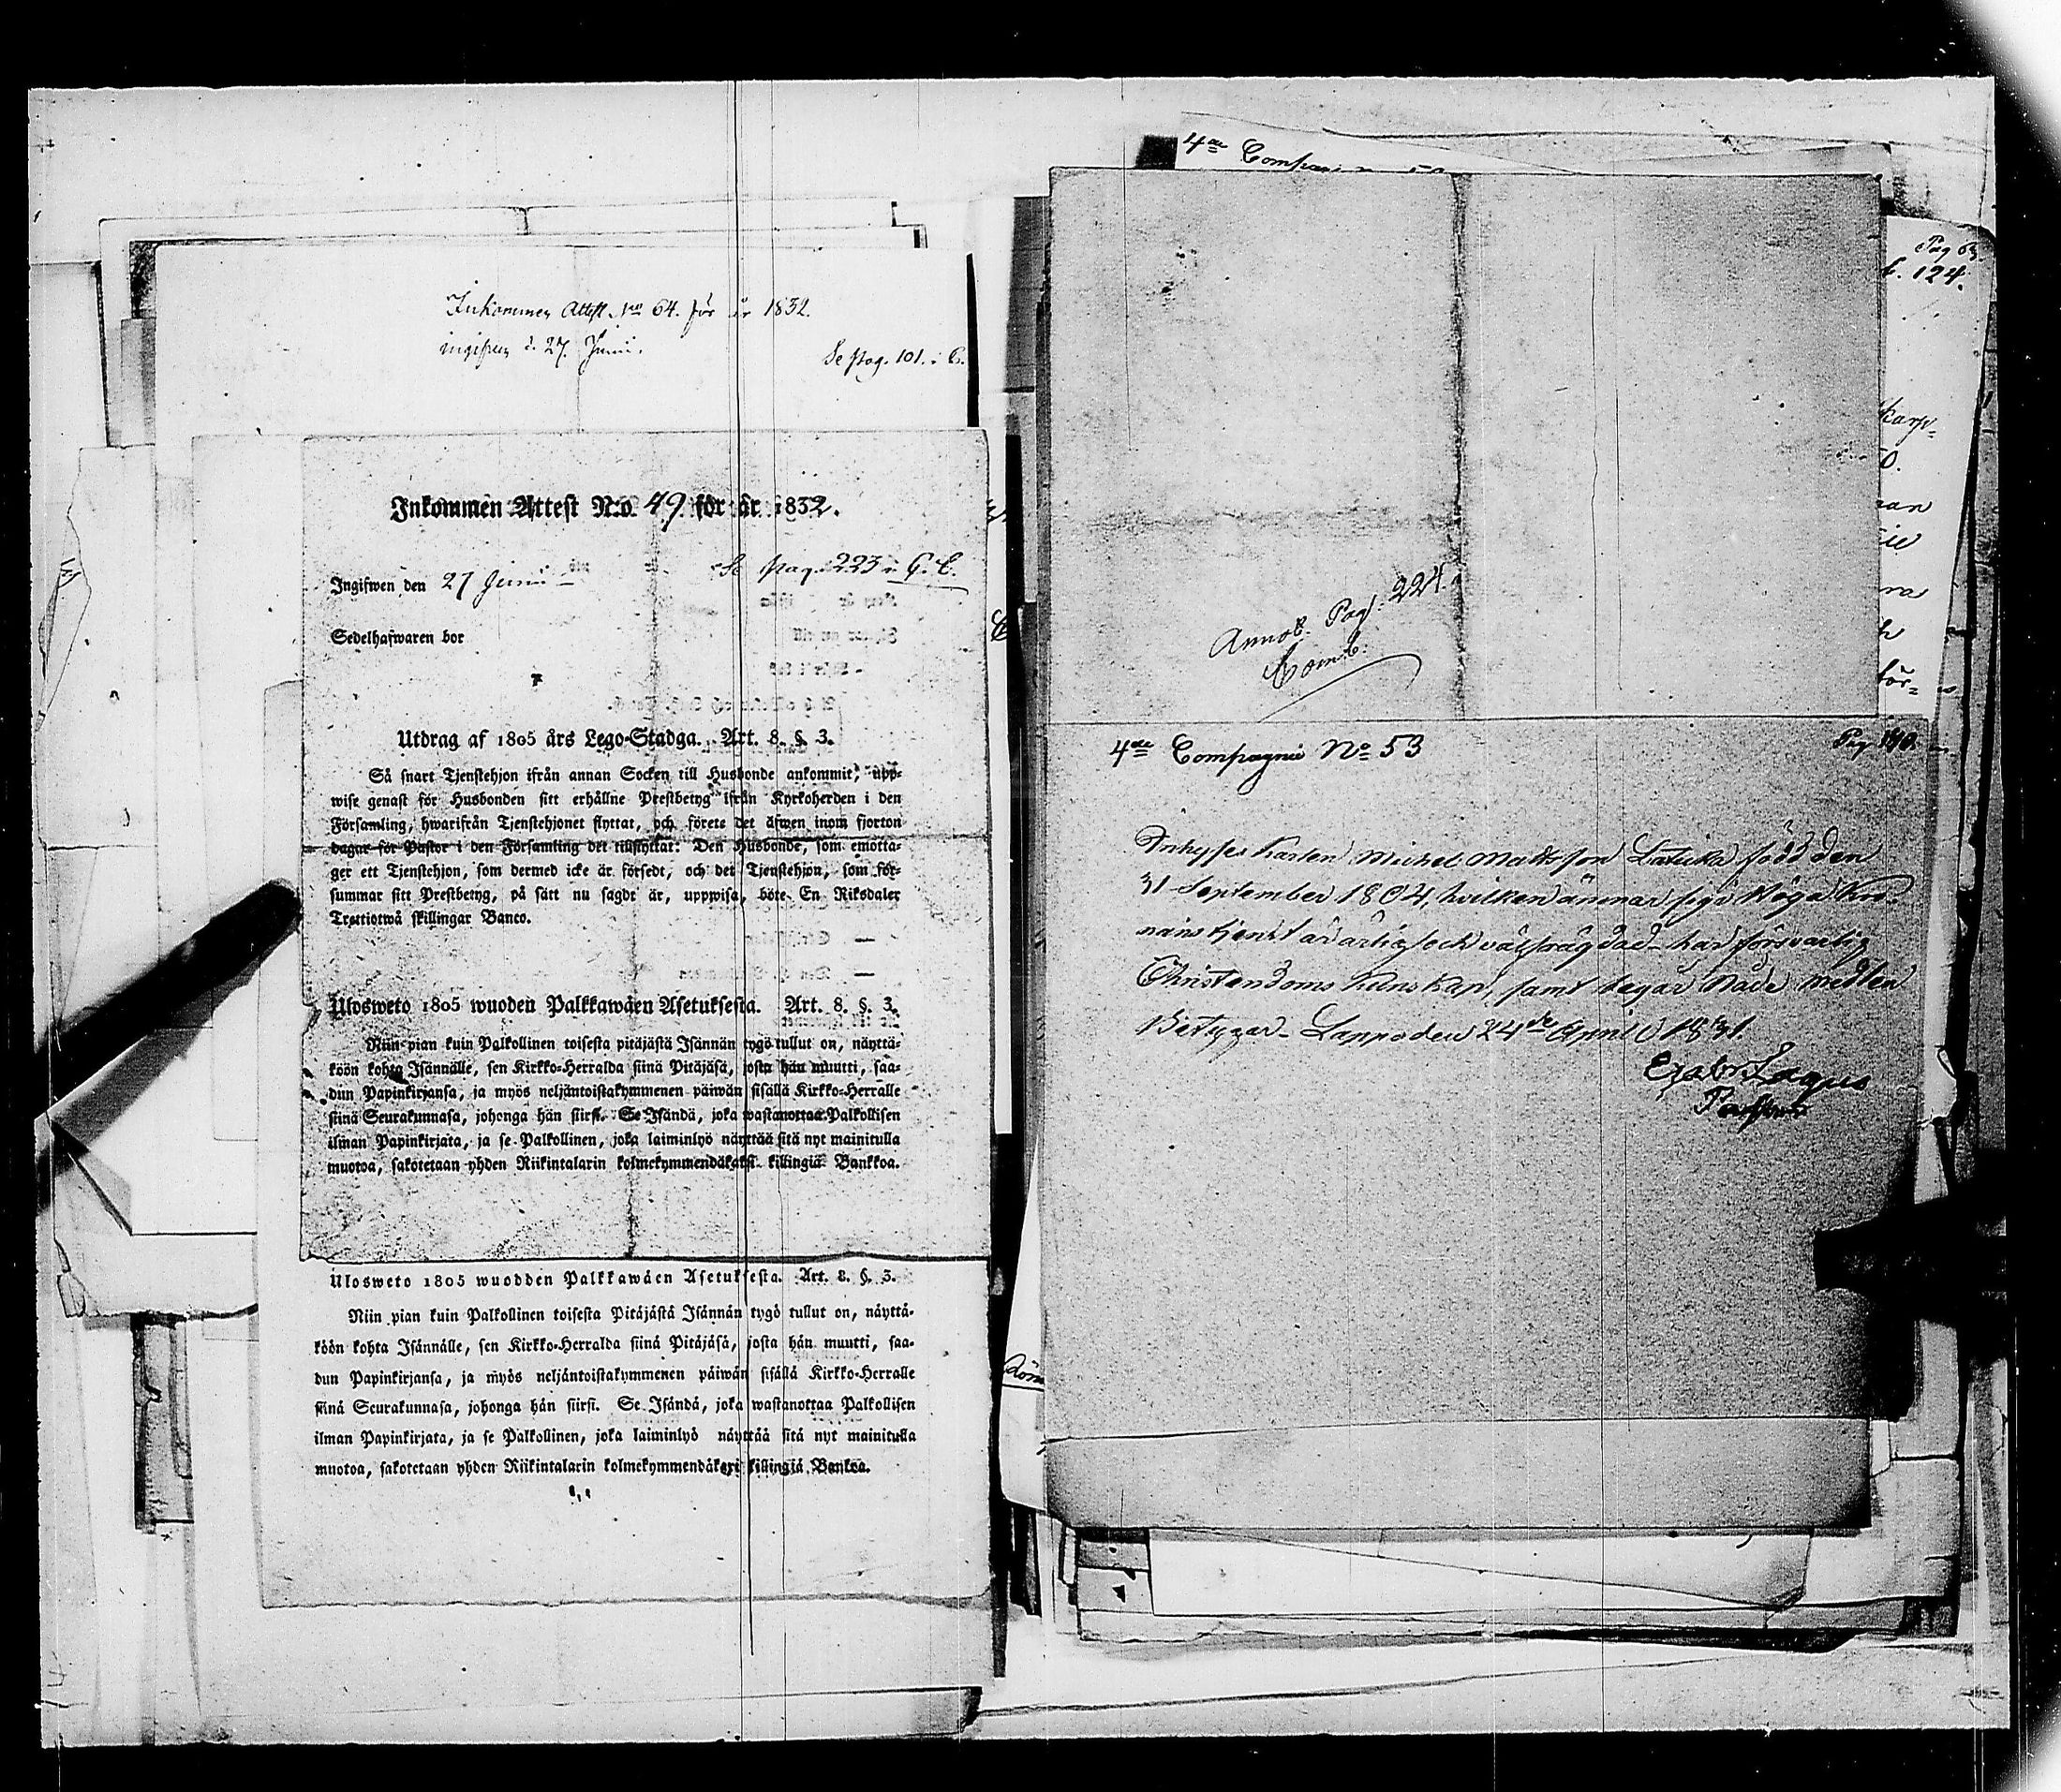 Inkommen Attest No 64. för år 1832.
ingifven d. 27. Junii.
Se pag. 101. i C.
Inkommen Attest N:o. 49 för år 1832.
Ingifwen den 27 Junii
Se pag. 223 i C. C.
Sedelhafwaren bor
Utdrag af 1805 års Lego-Stadga. Art. 8. §. 3.
Så snart Tjenstehjon ifrån annan Socken till Husbonde ankommit, upp-
wise genast för Husbonden sitt erhållne Prestbetyg ifrån Kyrkoherden i den
Församling, hwarifrån Tjenstehjonet flyttat, och förete det äfwen inom fjorton
dagar för Pastor i den Församling det tillflyttat: Den Husbonde, som emotta-
ger ett Tjenstehjon, som dermed icke är försedt, och det Tjenstehjon, som för-
summar sitt Prestbetyg, på sätt nu sagdt är, uppwisa, böte En Riksdaler
Trettiotwå skillingar Banco.
Ulosweto 1805 wuoden Palkkawäen Asetuksesta. Art. 8. §. 3.
Niin pian kuin Palkollinen toisesta pitäjästä Isännän tygö tullut on, näyttä-
köön kohta Isännälle, sen Kirkko-Herralda siinä Pitäjäsä, josta hän muutti, saa-
dun Papinkirjansa, ja myös neljäntoistakymmenen päiwän sisällä Kirkko-Herralle
siinä Seurakunnasa, johonga hän siirsi. Se Isändä, joka wastanottaa Palkollisen
ilman Papinkirjata, ja se Palkollinen, joka laiminlyö näyttää sitä nyt mainitulla
muotoa, sakotetaan yhden Riikintalarin kolmekymmendäkaksi killingiä Bankkoa.
Ulosweto 1805 wuodden Palkkawäen Asetuksesta. Art. 8. §. 3.
Niin pian kuin Palkollinen toisesta Pitäjästä Isännän tygö tullut on, näyttä-
köön kohta Isännälle, sen Kirkko-Herralda siinä Pitäjäsä, josta hän muutti, saa-
dun Papinkirjansa, ja myös neljäntoistakymmenen päiwän sisällä Kirkko-Herralle
siinä Seurakunnasa, johonga hän siirsi. Se Isändä, joka wastanottaa Palkollisen
ilman Papinkirjata, ja se Palkollinen, joka laiminlyö näyttää sitä nyt mainitulla
muotoa, sakotetaan yhden Riikintalarin kolmekymmendäkaxi killingiä Bankoa.
4de Compagni
Pag 63
124.
Annot. Pag. 224.
Comb.
4de Compagnie No 53
Pag
Inhyses Karlen Michel Mattsson Latukka född den
31 September 1804, hvilken ämnar sig i Höga Kro-
nans tjenst är ärlig och välfrägdad- har försvarlig
Christendoms kunskap, samt begår Nåde medlen
Betygar- Lappo den 24de April 1831.
Lagus
Pastor